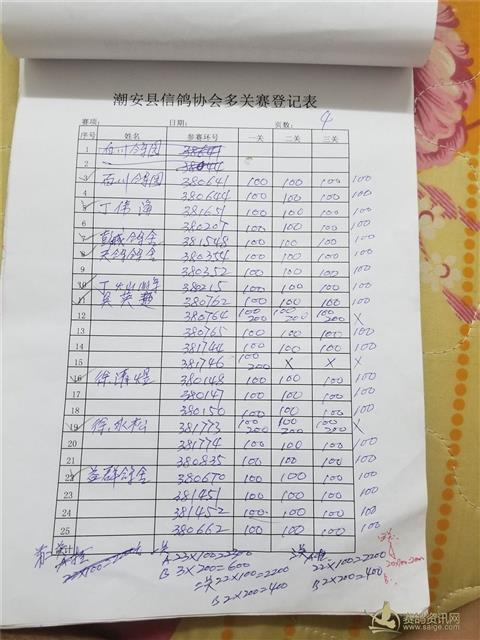 潮安县信鸽协会多关赛登记表
赛项： 日期： 页数： 4
序号 姓名 参赛环号 一关 二关 三关
1 石川鸽园 38641
2 38044
3 石川鸽园 380641 100 100 100 100
4 380644 100 100 100 100
5 丁伟海 381651 100 100 100 100
6 380207 100 100 100 100
7 彭城鸽舍 381548 100 100 100 100
8 天鸽鸽舍 380354 100 100 100 100
9 380352 100 100 100 100
10 380215 100 100 100 100
11 吴英题 380762 100 100 100 100
12 380764 100 200 100 200 100 200 X
13 380765 100 100 100 100
14 381744 100 100 100 100
15 381746 100 200 X X X
16 徐清煜 380148 100 100 100 100
17 380147 100 100 100 100
18 380150 100 100 100 100
19 徐永松 381773 100 200 100 200 100 200 X
20 381774 100 100 100 100
21 380835 100 100 100 100
22 益群鸽舍 380670 100 100 100 100
23 381451 100 100 100 100
24 381452 100 100 100 100
25 380662 100 100 100 100
合计
A 23×100=2300
B 3×200=600
二关 22×100=2200
B 2×200=400
22×100=2200
B 2×200=400
赛鸽资讯网
www.saige.com